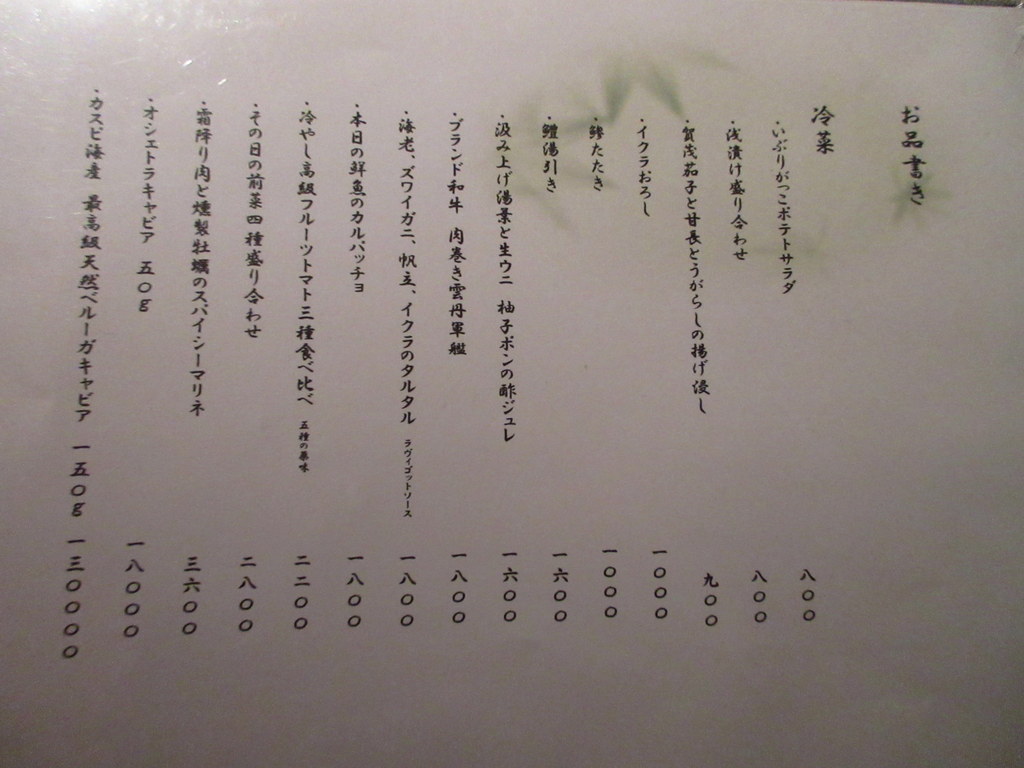 お品書き
冷菜
・いぶりがっこポテトサラダ 八〇〇
・浅漬け盛り合わせ 八〇〇
・賀茂茄子と甘長とうがらしの揚げ浸し 九〇〇
・イクラおろし 一〇〇〇
・鯵たたき 一〇〇〇
・鱧湯引き 一六〇〇
・汲み上げ湯葉と生ウニ 柚子ポンの酢ジュレ 一六〇〇
・ブランド和牛 肉巻き雲丹軍艦 一八〇〇
・海老、ズワイガニ、帆立、イクラのタルタル ラヴィゴットソース 一八〇〇
・本日の鮮魚のカルパッチョ 一八〇〇
・冷やし高級フルーツトマト三種食べ比べ 五種の薬味 二二〇〇
・その日の前菜四種盛り合わせ 二八〇〇
・霜降り肉と燻製牡蠣のスパイシーマリネ 三六〇〇
・オシェトラキャビア 五〇g 一八〇〇〇
・カスピ海産 最高級天然ベルーガキャビア 一五〇g 一三〇〇〇〇